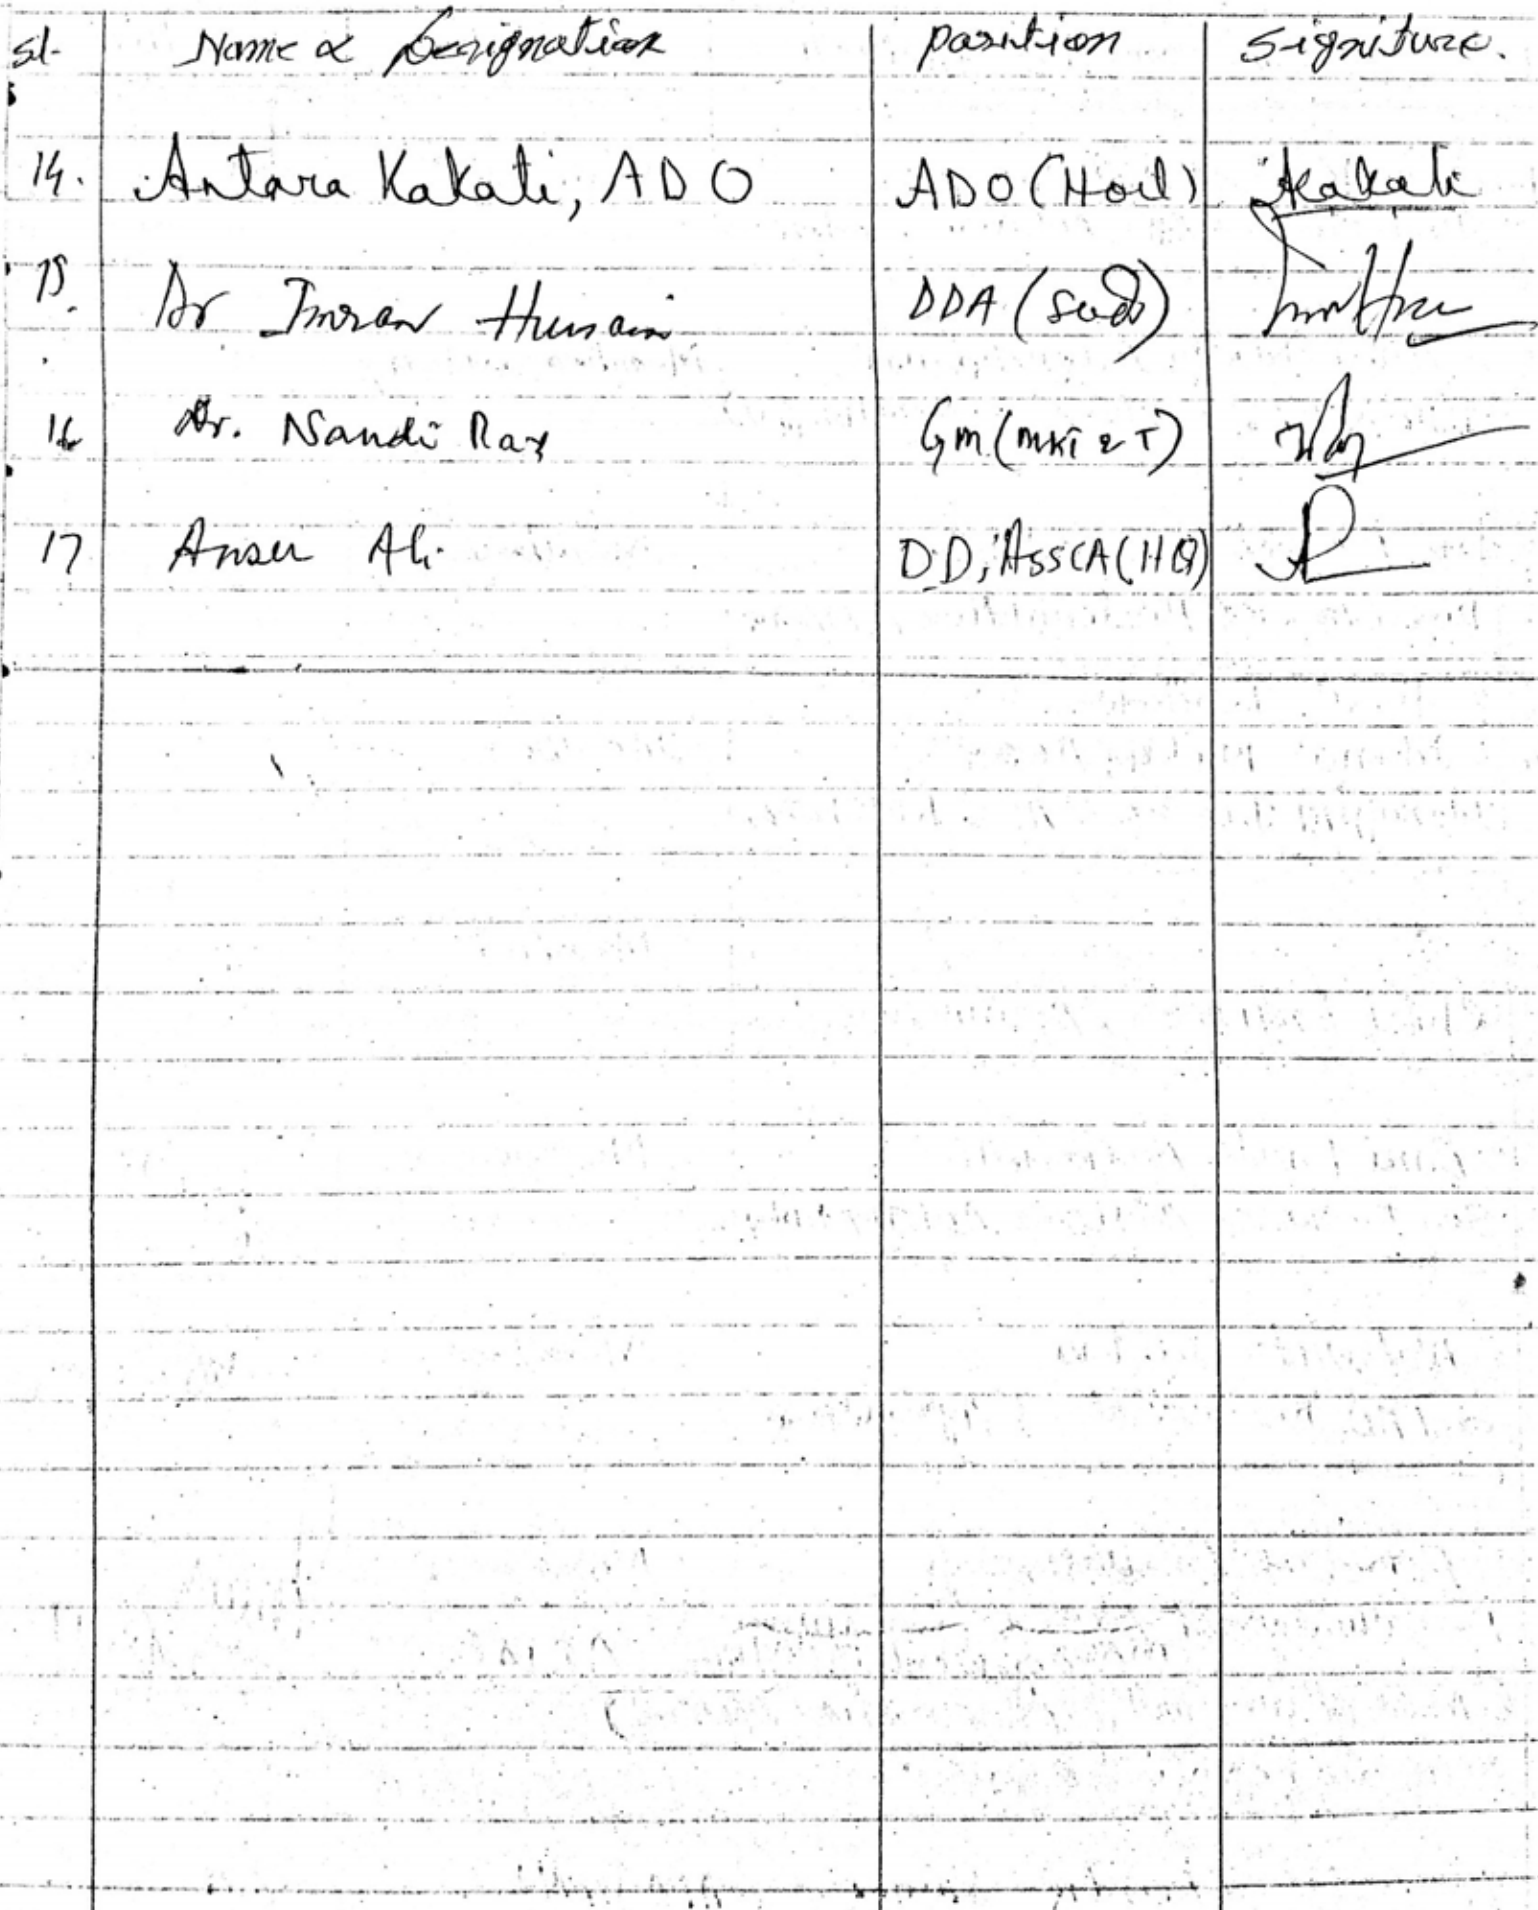 sl. Name & Designation position signiture.
14. Antara Kakati, ADO ADO (Hort) Kakati
15. Dr Imran Hussain DDA (Seed)
16 Dr. Nandi Ray Gm (MKT & T)
17 Anser Ali DD, ASSCA (HQ)